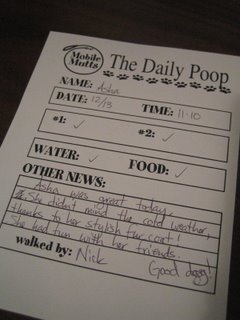 Mobile
Mutts
The Daily Poop
NAME: Asha
DATE: 12/13 TIME: 11:10
#1: ✓ #2: ✓
WATER: ✓ FOOD: ✓
OTHER NEWS:
Asha was great today.
She didn't mind the cold weather,
thanks to her stylish fur coat!
She had fun with her friends.
walked by: Nick Good doggy!